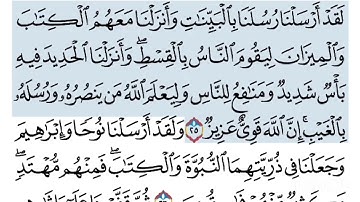 لَقَدْ أَرْسَلْنَا رُسُلَنَا بِالْبَيِّنَٰتِ وَأَنزَلْنَا مَعَهُمُ الْكِتَٰبَ
وَالْمِيزَانَ لِيَقُومَ النَّاسُ بِالْقِسْطِ ۖ وَأَنزَلْنَا الْحَدِيدَ فِيهِ
بَأْسٌ شَدِيدٌ وَمَنَٰفِعُ لِلنَّاسِ وَلِيَعْلَمَ اللَّهُ مَن يَنصُرُهُۥ وَرُسُلَهُۥ
بِالْغَيْبِ ۚ إِنَّ اللَّهَ قَوِىٌّ عَزِيزٌ ٢٥ وَلَقَدْ أَرْسَلْنَا نُوحًا وَإِبْرَٰهِيمَ
وَجَعَلْنَا فِى ذُرِّيَّتِهِمَا النُّبُوَّةَ وَالْكِتَٰبَ ۖ فَمِنْهُم مُّهْتَدٍ ۖ